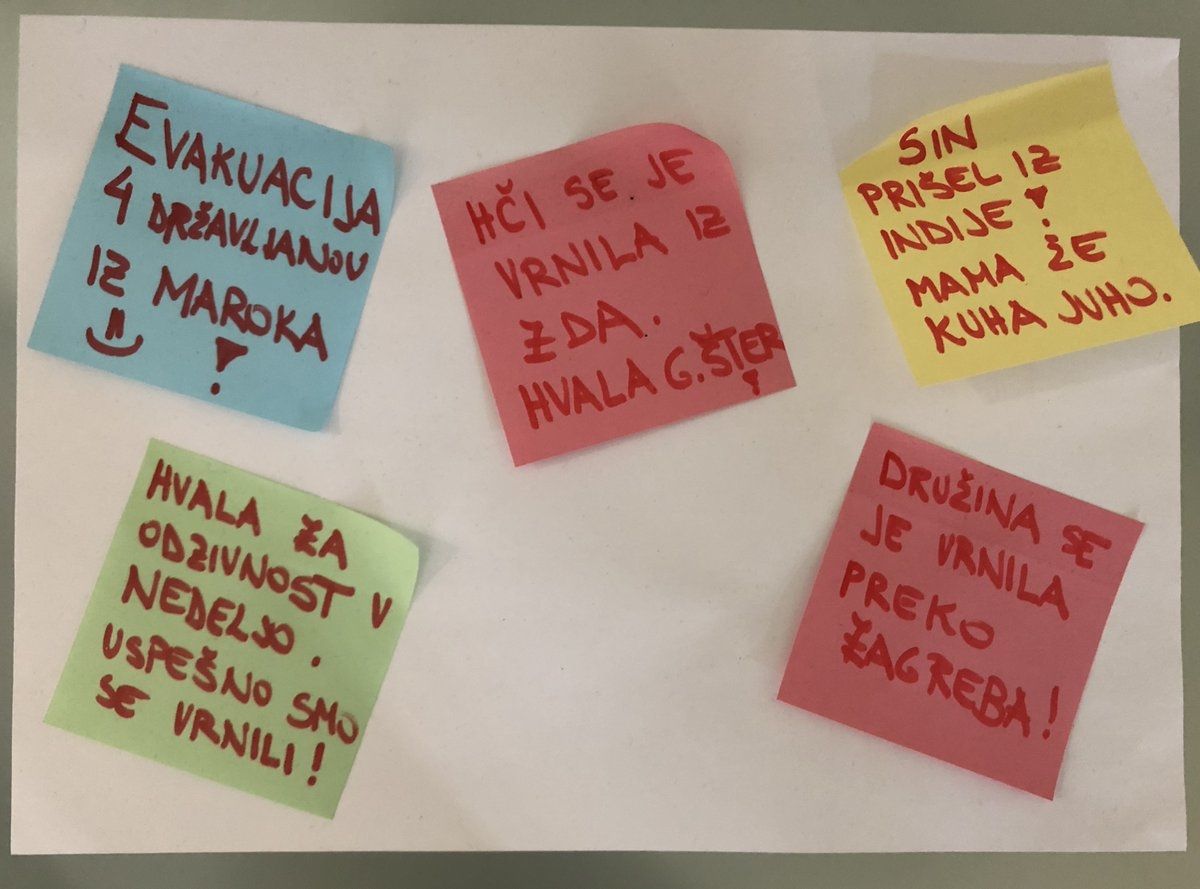 EVAKUACIJA
4 DRŽAVLJANOV
IZ MAROKA
!
HČI SE JE
VRNILA IZ
ZDA.
HVALA G. ŠTER!
SIN
PRIŠEL IZ
INDIJE!
MAMA ŽE
KUHA JUHO.
HVALA ZA
ODZIVNOST V
NEDELJO.
USPEŠNO SMO
SE VRNILI!
DRUŽINA SE
JE VRNILA
PREKO
ZAGREBA!